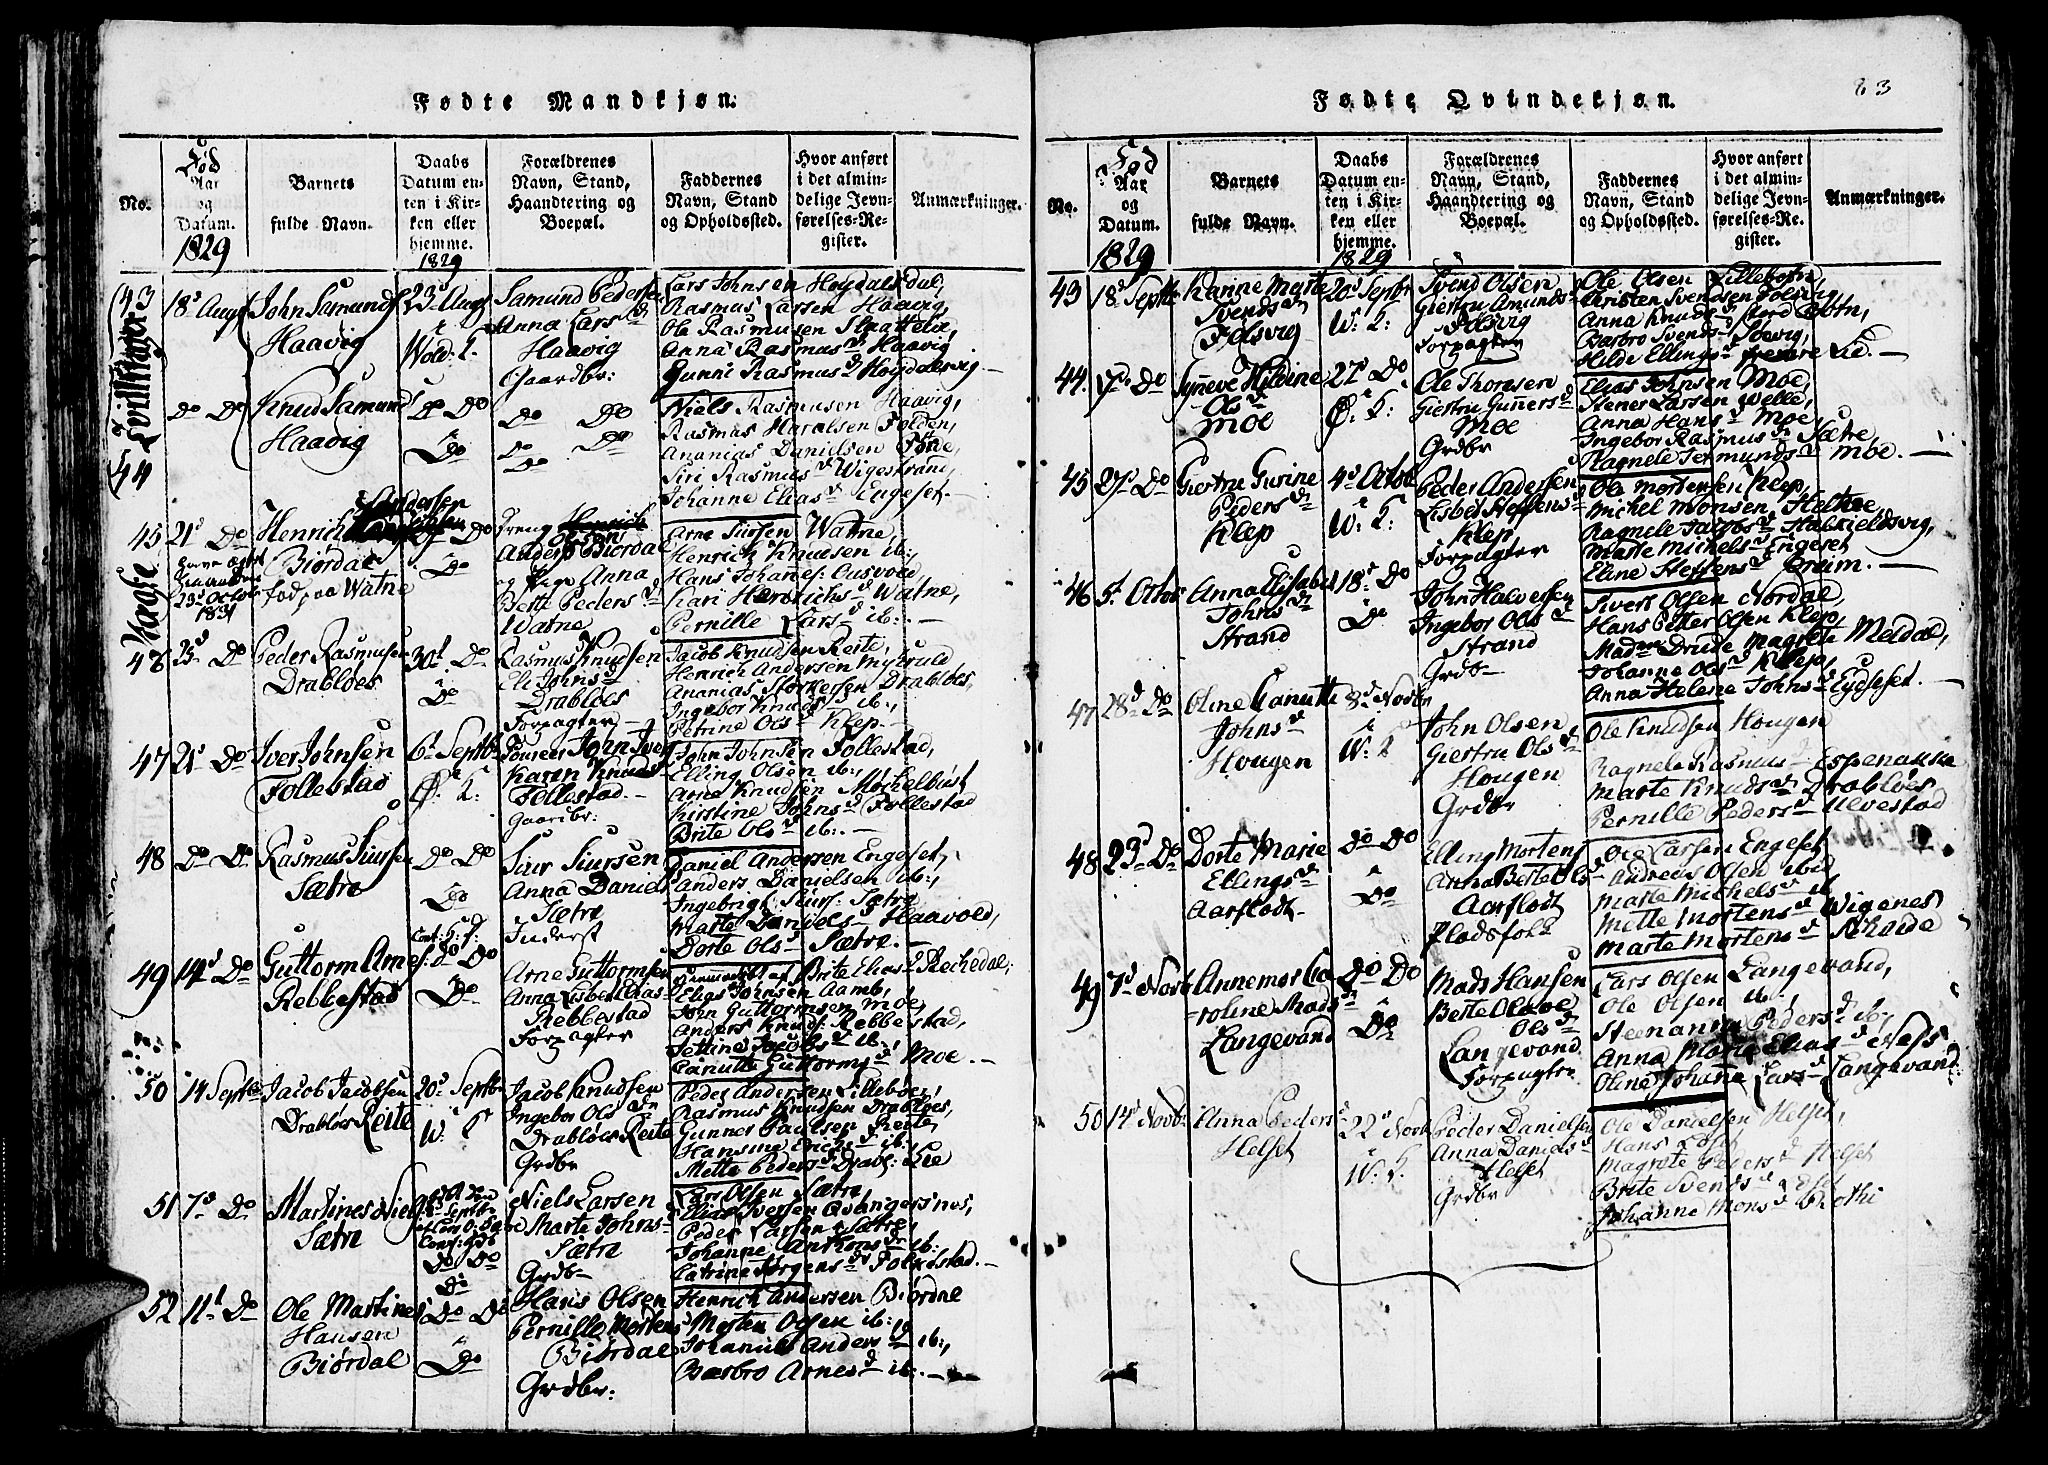 Fødte Mandkjøn.
No.
Fød
Aar
og
Datum.
1829
Barnets
fulde Navn.
Daabs
Datum en-
ten i Kir-
ken eller
hjemme.
1829
Forældrenes
Navn, Stand,
Haandtering og
Boepæl.
Faddernes
Navn, Stand
og Opholdssted.
Hvor anført
i det almin-
delige Jevn-
førelses-Re-
gister.
Anmærkninger.
Tvillinger
43
18d Aug
John Samunds
Haavig
23d Aug
Wold: K.
Samund Peders
Anna Lars d
Haavig
Gaardbr:
Lars Johnsen Høydalsdal,
Rasmus Larsen Haavig,
Ole Rasmusen Slaatteli,
Anna Rasmus d Haavig
Gunni Rasmus d Høydalsvig —
44
Do Do
Knud Samunds
Haavig
Do Do
Do
Do Do
Do Do
Do
Niels Rasmusen Haavig,
Rasmus Haralsen Folden,
Ananias Danielsen
Siri Rasmus d Wigestrand,
Johanne Elias d Engeset. —
45
21d Do
1831
Henrich Andersen
Biørdal
fød paa Watne
Do
Do
Dreng
Anders Biørdal
og Pige Anna
Berte Peders d
Watne
Arne Siursen Watne,
Henrich Knudsen ib:,
Hans Johanes: Ousvold,
Kari Henrichs d Watne,
Pernille Lars d ib: —
46
23d Do
Peder Rasmusen
Drabløes
30d Do
Do
Rasmus Knudsen
Eli Johns d
Drabløes
Forpagter —
Jacob Knudsen Reite,
Henrich Andersen Myrvold
Ananias Størkersen Drabløes,
Ingebor Knuds d ib:,
Petrine Ols d Klep —
47
21d Do
Iver Johnsen
Follestad
6d Septbr
Ø: K:
John Ivers
Karen Knuds
Follestad. —
Gaardbr:
John Johnsen Follestad,
Elling Olsen ib:,
Arne Knudsen Mechelbust
Kirstine Johns d Follestad
Brite Ols d ib: —
48
Do Do
Rasmus Siursen
Sætre
Do Do
Do
Siur Siursen
Anna Daniels
Sætre
Inderst
Daniel Andersen Engeset,
Anders Danielsen ib:,
Ingebrigt Siurs: Sætre
Marte Daniels d Haavold,
Dorte Ols d Sætre. —
49
14d Do
Guttorm Arnes:
Rebbestad
Do Do
Do
Arne Guttormsen
Anna Lisbet Elias
Rebbestad
Forpagter
Brite Elias d Rechedal,
Elias Johnsen Aamb,
John Guttormsen Moe,
Anders Knuds: Rebbestad,
Jettine Jacobs d ib:,
Canutte Guttorms d Moe. —
50
14 Septbr
Jacob Jacobsen
Drabløs Reite
20d Septbr
W: K
Jacob Knudsen
Ingebor Ols d
Drabløs Reite
Grdbr
Peder Andersen Lillebøe,
Rasmus Knudsen Drabløes,
Gunner Paulsen Reite,
Hansine Erichs d ib:,
Mette Peders d Drabl: Lie
51
7d Do
Martines Niels
Sætre
Do Do
Do
Niels Larsen
Marte Johns
Sætre
Grdb
Lars Olsen Sætre
Elias Iversen Qvangersnes,
Peder Larsen Sætre,
Johanne Anthons d ib:
Catrine Jørgens d Folkestad. —
52
11d Do
Ole Martines
Hansen
Biørdal
Do Do
Do
Hans Olsen
Pernille Mortens
Biørdal
Grdbr:
Henrich Andersen Biørdal
Morten Olsen ib:
Johannes Anders d ib:,
Barbro Arnes d ib:. —
Fødte Qvindekjøn.
83
No.
Fød
Aar
og
Datum.
1829
Barnets
fulde Navn.
Daabs
Datum en-
ten i Kir-
ken eller
hjemme.
1829
Forældrenes
Navn, Stand,
Haandtering og
Boepæl.
Faddernes
Navn, Stand
og Opholdssted.
Hvor anført
i det almin-
delige Jevn-
førelses-Re-
gister.
Anmærkninger.
43
18d Septbr
Karine Marte
Svends d
Folsvig
20d Septbr
W: K:
Svend Olsen
Giertru Amunds
Folsvig
Forpagter
Ole Olsen Lillebotn,
Christen Svendsen Folsvig,
Anna Knuds d Botn,
Barbro Svends d Søevig,
Hilde Ellings d Lie. —
44.
7d Do
Synneve Hildine
Ols d
Moe
27d Do
Ø: K:
Ole Thomsen
Giertru Gunners d
Moe
Grdbr
Elias Johnsen Moe,
Stener Larsen Welle,
Anna Hans d Moe,
Ingebor Rasmus d Sætre
Ragnele Germunds d Moe. —
45
27d Do
Giertru Gurine
Peders d
Klep
4d Octob
W: K:
Peder Andersen
Lisbet Steffens d
Klep
Forpagter
Ole Mortensen Klep,
Michel Monsen,
Ragnele Jacobs d
Marte Michels d Engeset
Eline Steffens d —
46
5d Octob
Anna Elisabet
Johns d
Strand
18d Do
Do
John Halvorsen
Ingebor Ols d
Strand
Grdb
Sivert Olsen Nordal,
Hans Petter Olsen Klep,
Madme Drude Magrete Meldal,
Johanne Ols d Klep,
Anna Helene Johns d Eydsset. —
47
28d Do
Oline Canutte
Johns d
Hougen
8d Novbr
W: K
John Olsen
Giertru Ols d
Hougen
Grdbr
Ole Knudsen Hougen
Ragnele Rasmus d Espenakke
Marte Knuds d Drabløes
Pernille Peders d Ulvestad
48
23d Do
Dorte Marie
Ellings d
Aarflodt
Do Do
Do
Elling Mortens
Anna Berte Ols d
Aarflodt
Pladsfolk
Ole Larsen Engeset
Andreas Olsen ibid
Marte Michels d ib
Mette Mortens d Wigenes
Marte Mortens d
49
7d Novb
Annemor Ca-
roline Mads d
Langevand
Do Do
Do
Mads Hansen
Berte Olave
Ols d
Langevand
Forpagter
Lars Olsen Langevand,
Ole Olsen ib:,
Steenanna Peders d ib:,
Anna Maria Elias d Næss
Oline Johane Lars d Langevand
50
14d Novb:
Anna Peders d
Helset
22d Novb
W: K.
Peder Danielsen
Anna Daniels d
Helset
Grdbr
Ole Danielsen Helset,
Magrete Peders d Helset
Brite Svends d
Johanne Mons d